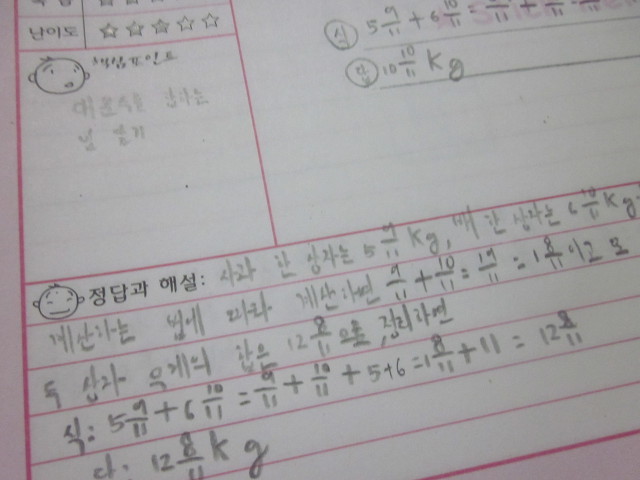 난이도 ☆☆☆☆☆
식 5 9/11 + 6 10/11 = 9/11 +
답 10 10/11 Kg
핵심포인트
대분수를 더하는
법 알기
정답과 해설: 사과 한 상자는 5 9/11 Kg, 배 한 상자는 6 10/11 Kg
계산하는 법에 따라 계산하면 9/11 + 10/11 = 19/11 = 1 8/11 이고 모
두 상자 무게의 합은 12 8/11 으로 정리하면
식: 5 9/11 + 6 10/11 = 9/11 + 10/11 + 5+6 = 1 8/11 + 11 = 12 8/11
답: 12 8/11 kg